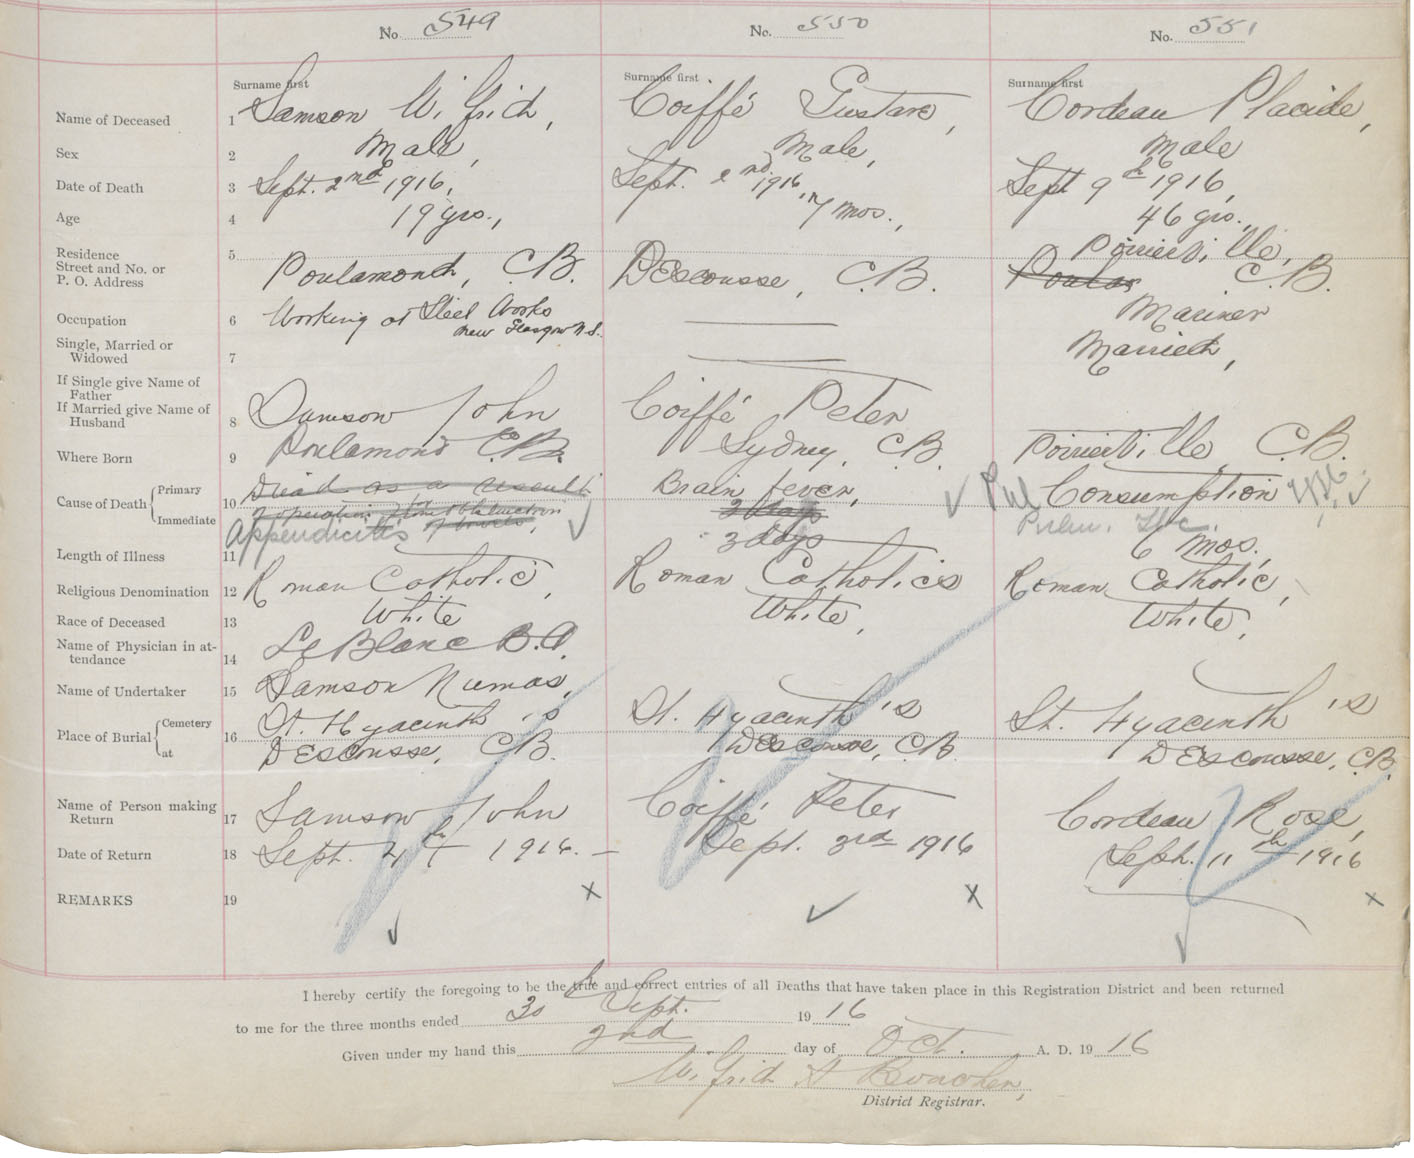 No. 549 No. 550 No. 551
Surname first Surname first Surname first
Name of Deceased 1 Samson Wilfrid, Coiffé Gustave, Cordeau Placide,
Sex 2 Male, Male, Male
Date of Death 3 Sept. 2nd 1916, Sept. 2nd 1916, Sept 9th 1916,
Age 4 19 yrs., 7 mos., 46 yrs.,
Residence 5 Poirierville,
Street and No. or
P. O. Address Poulamond, C.B. DEscousse, C.B. Poula C.B.
Occupation 6 Working at Steel Works Mariner
New Glasgow N.S.
Single, Married or
Widowed 7 Married,
If Single give Name of
Father
If Married give Name of
Husband 8 Samson John Coiffé Peter
Where Born 9 Poulamond C.B. Sydney, C.B. Poirierville C.B.
Cause of Death Primary Died as a result Brain fever, Pul Consumption
10 of operation for obstruction 3 days Pulm. Tbc.
Immediate of bowels,
Appendicitis
Length of Illness 11 3 days 6 mos.,
Religious Denomination 12 Roman Catholic, Roman Catholics Roman Catholic,
Race of Deceased 13 White White, White,
Name of Physician in at-
tendance 14 LeBlanc B.A.
Name of Undertaker 15 Samson Numas,
Place of Burial Cemetery 16 St. Hyacinth's St. Hyacinth's St. Hyacinth's
at DEscousse, C.B. DEscousse, C.B. DEscousse, C.B.
Name of Person making
Return 17 Samson John Coiffé Peter Cordeau Rose,
Date of Return 18 Sept. 4th 1916. Sept. 3rd 1916 Sept. 11th 1916
REMARKS 19 x x x
I hereby certify the foregoing to be the true and correct entries of all Deaths that have taken place in this Registration District and been returned
to me for the three months ended 30th Sept. 1916
Given under my hand this 2nd day of Oct. A. D. 1916
Wilfrid A
District Registrar.